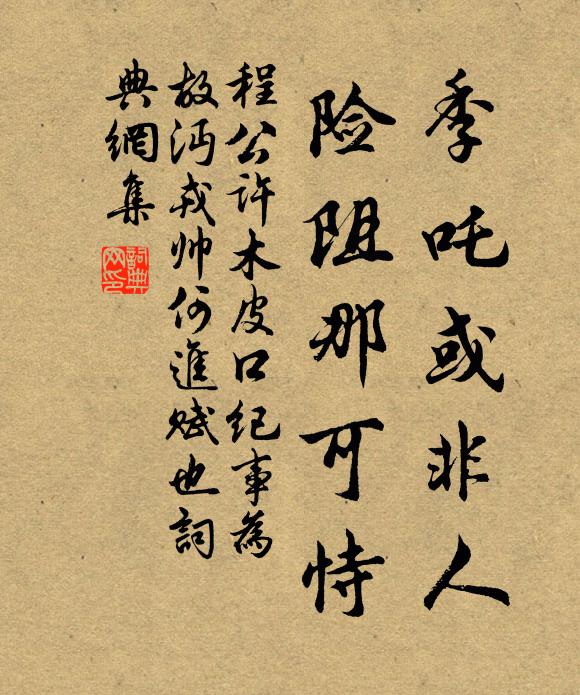 季吒或非人
险阻那可恃
程公许木皮口纪事為
故沔戎帅何進赋也詞
典網集
詞典網印